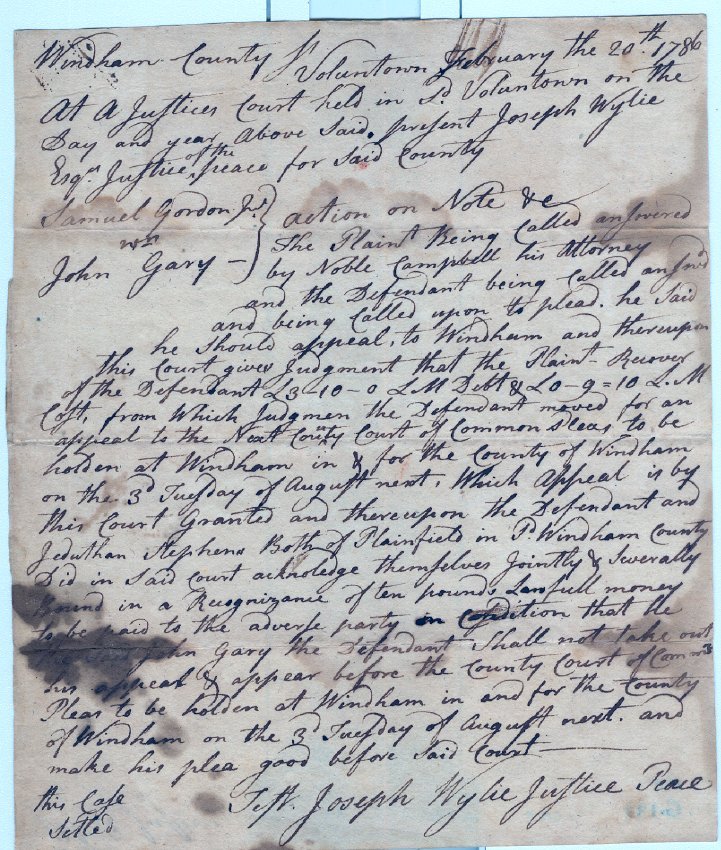 Windham County Ss Voluntown February the 20th 1786
At A Justices Court held in Sd Voluntown on the
Day and year Above Said, present Joseph Wylie
Esqr. Justice of the peace for Said County
Samuel Gordon Jr.
vs
John Gary
action on Note &c
The Plaint Being Called answered
by Noble Campbell his Attorney
and the Defendant being Called
and being Called upon to plead. he Said
he Should appeal, to Windham and thereupon
this Court gives Judgment that the Plaint Recover
of the Defendant £3-10-0 L M Debt & £0-9=10 L. M
Cost, from Which Judgmen the Defendant moved for an
appeal to the Next County Court of Common pleas to be
holden at Windham in & for the County of Windham
on the 3d Tuesday of August next, Which Appeal is by
this Court Granted and thereupon the Defendant and
Jeduthan Stephens Both of Plainfield in Windham County
Did in Said Court acknoledge themselves Jointly & Severally
Bound in a Recognizance of ten pounds Lawfull money
to be paid to the adverse party in that He
John Gary the Defendant Shall not take out
his appeal & appear before the County Court of
Pleas to be holden at Windham in and for the County
of Windham on the 3d Tuesday of August next. and
make his plea good before Said Court
Test. Joseph Wylie Justice Peace
this Case
Setled